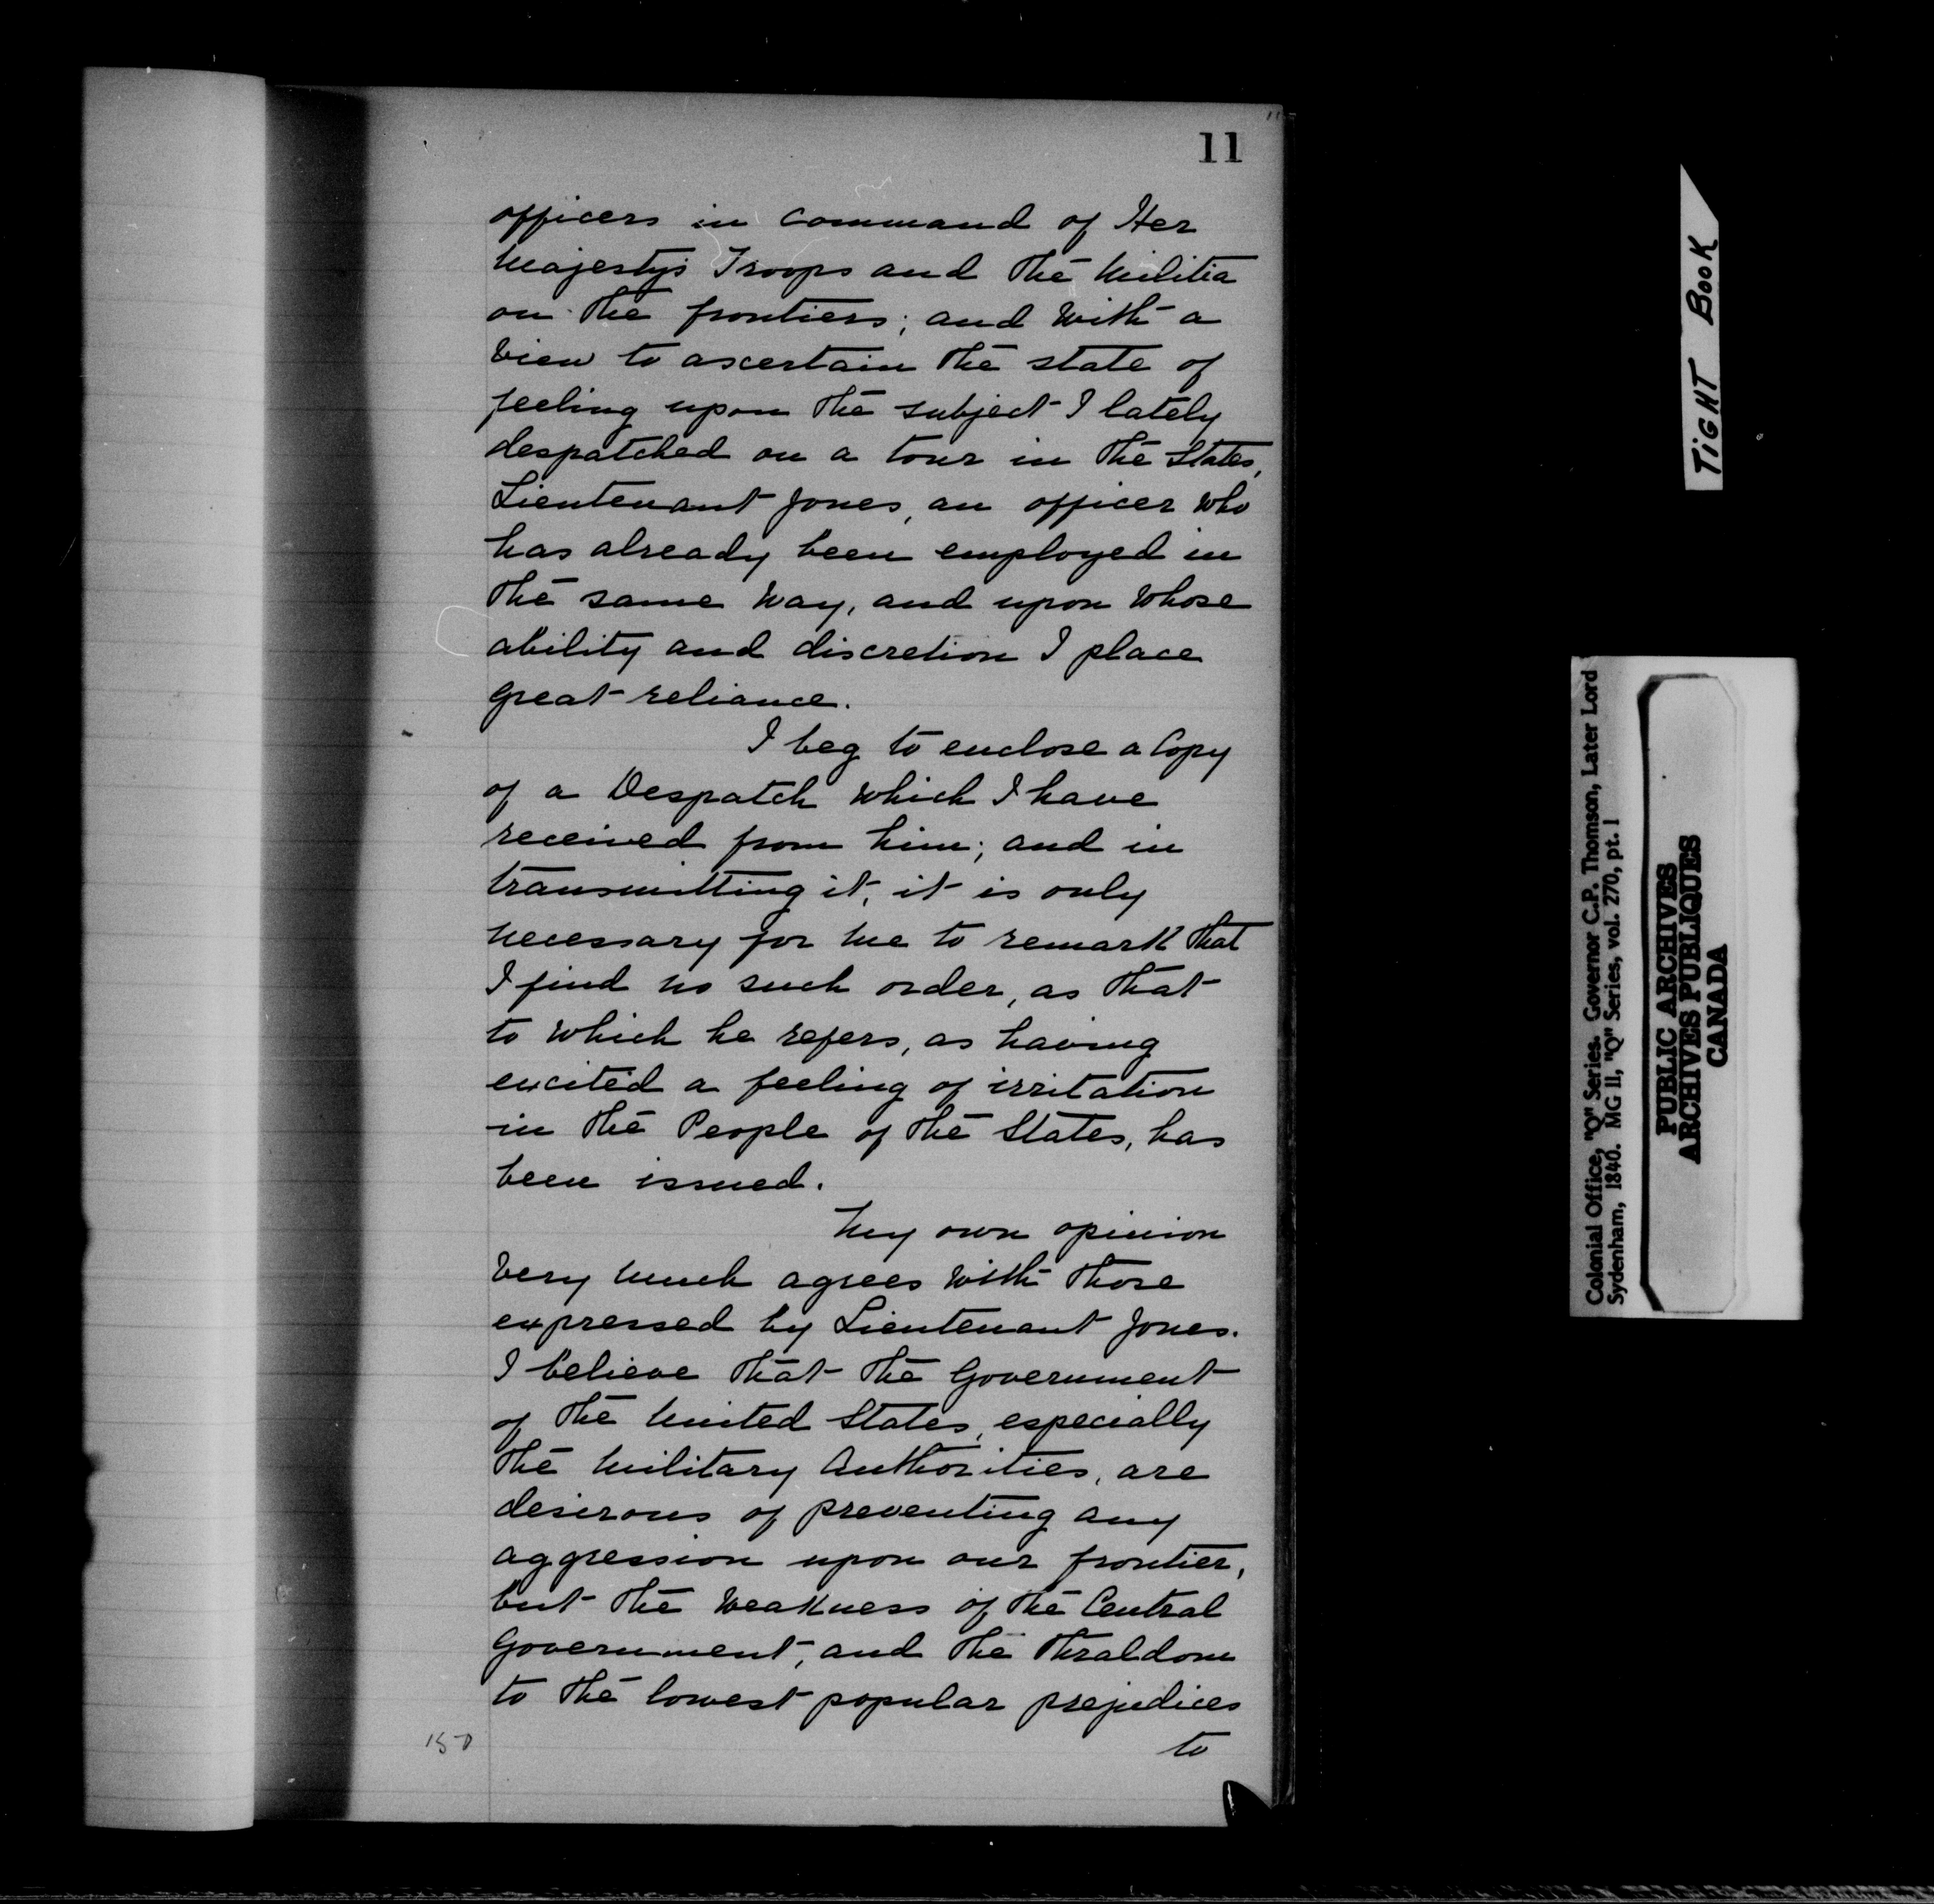 11
officers in command of Her
Majesty's Troops and the Militia
on the frontiers; and with a
view to ascertain the state of
feeling upon the subject I lately
despatched on a tour in the States,
Lieutenant Jones, an officer who
has already been employed in
the same way, and upon whose
ability and discretion I place
great reliance.
I beg to enclose a Copy
of a Despatch which I have
received from him; and in
transmitting it, it is only
necessary for me to remark that
I find no such order, as that
to which he refers, as having
excited a feeling of irritation
in the People of the States, has
been issued.
My own opinion
very much agrees with those
expressed by Lieutenant Jones.
I believe that the Government
of the United States, especially
the Military Authorities, are
desirous of preventing any
aggression upon our frontier,
but the weakness of the Central
Government, and the thraldom
to the lowest popular prejudices
to
150
TIGHT BOOK
Colonial Office, "Q" Series. Governor C.P. Thomson, Later Lord
Sydenham, 1840. MG 11, "Q" Series, vol. 270, pt. 1
PUBLIC ARCHIVES
ARCHIVES PUBLIQUES
CANADA